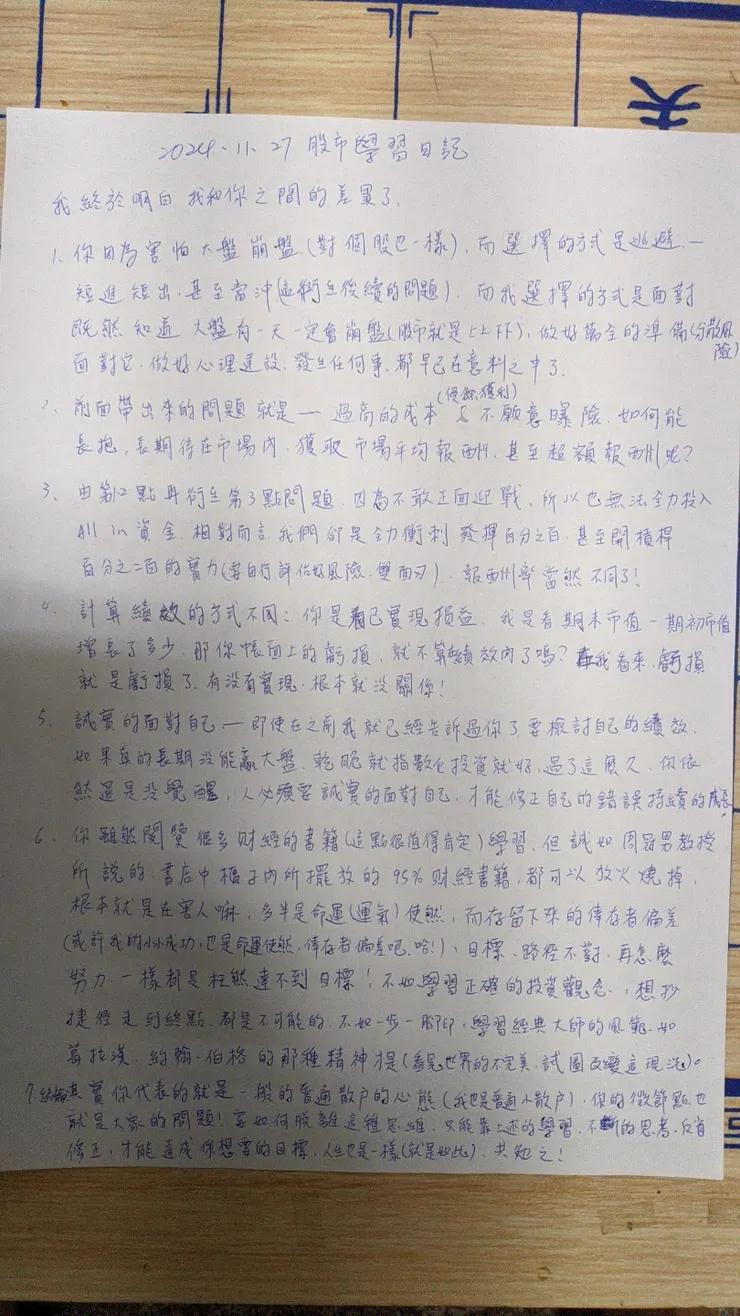 夫
2024.11.27 股市學習日記
我終於明白 我和你之間的差異了.
1. 你因為害怕大盤崩盤(對個股也一樣),而選擇的方式是逃避.—
短進短出.甚至當沖(這衍生後續的問題).而我選擇的方式是面對
既然知道 大盤有一天一定會崩盤(股市就是上上下下),做好萬全的準備(分散風險)
面對它.做好心理建設.發生任何事.都早已在意料之中了.
2. 前面帶出來的問題 就是— 過高的成本(侵蝕獲利) & 不願意曝險.如何能
長抱,長期待在市場內.獲取市場平均報酬.甚至超額報酬呢?
3. 由第12點再衍生第3點問題.因為不敢正面迎戰.所以也無法全力投入
All in 資金.相對而言.我們卻是全力衝刺 發揮百分之百.甚至開槓桿
百分之二百的實力(要自行評估好風險.雙面刃).報酬率當然不同了!
4. 計算績效的方式不同:你是看已實現損益.我是看期末市值-期初市值
增長了多少.那你帳面上的虧損,就不算績效內了嗎?在我看來.虧損
就是虧損了.有沒有實現.根本就沒關係!
5. 誠實的面對自己.— 即使在之前我就已經告訴過你了.要檢討自己的績效.
如果真的長期沒能贏大盤.乾脆就指數化投資就好.過了這麼久.你依
然還是沒覺醒,人必須要誠實的面對自己,才能修正自己的錯誤持續的成長,
6. 你雖然閱覽很多財經的書籍(這點很值得肯定)學習,但誠如周冠男教授
所說的.書店中櫃子內所擺放的95%財經書籍,都可以放火燒掉,
根本就是在害人嘛,多半是命運(運氣)使然,而存留下來的倖存者偏差
(或許我的小小成功,也是命運使然,倖存者偏差吧.哈!),目標、路徑不對.再怎麼
努力 一樣都是枉然達不到目標!不如學習正確的投資觀念.,想抄
捷徑走到終點.都是不可能的.不如一步一腳印.學習經典大師的風範.如
葛拉漢.約翰.伯格的那種精神才是(看見世界的不完美.試圖改變這現況)。
7.結論其實你代表的就是一般的普通散戶的心態(我也是普通小散戶).你的微節點也
就是大家的問題!要如何脫離這種思維.只能靠上述的學習.不斷的思考.反省
修正,才能達成你想要的目標,人生也是一樣(就是如此).共勉之!